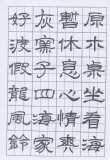 原木桌坐看海
暫休息心情爽
灰窯子四海家
好波假龍風鈴